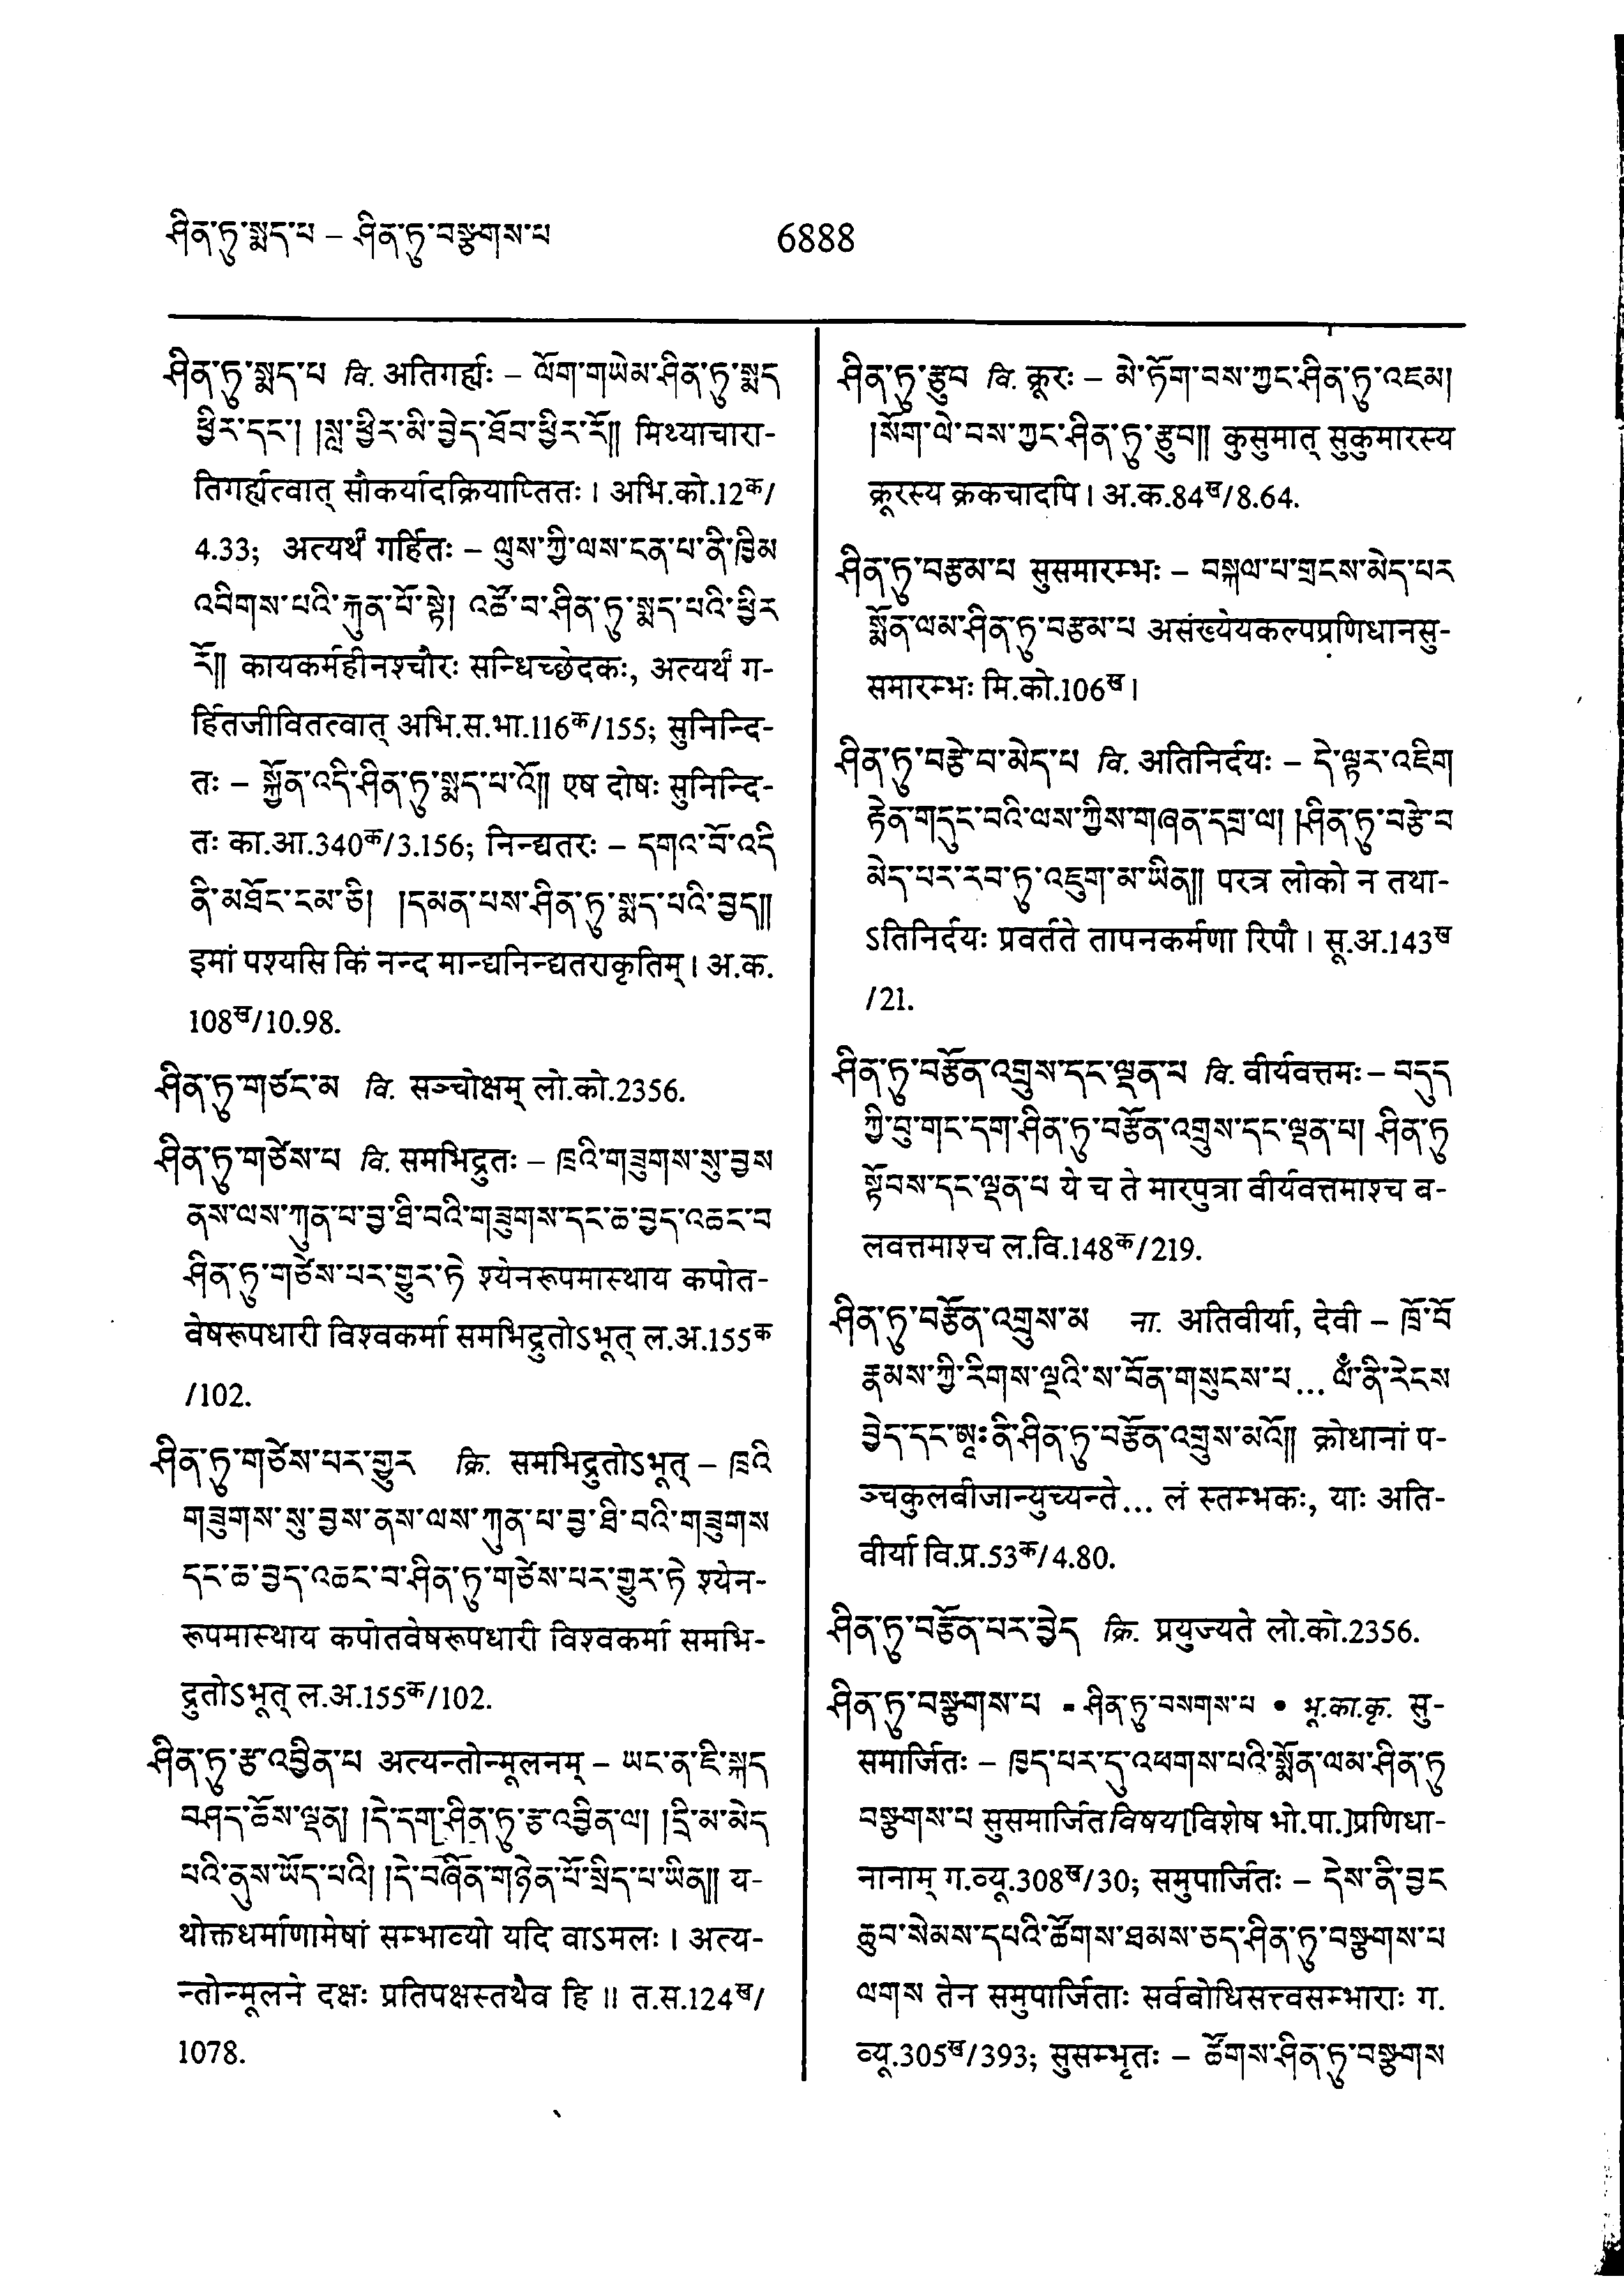 ཤིན་ཏུ་སྨད་པ – ཤིན་ཏུ་བསྩགས་པ
6888
ཤིན་ཏུ་སྨད་པ वि. अतिगर्ह्यः – ལོག་གཡེམ་ཤིན་ཏུ་སྨད
ཕྱིར་དང་། །སླ་ཕྱིར་མི་བྱེད་ཐོབ་ཕྱིར་རོ༎ मिथ्याचारा-
तिगर्ह्यत्वात् सौकर्यादक्रियाप्तितः । अभि.को.12क/
4.33; अत्यर्थं गर्हितः – ལུས་ཀྱི་ལས་ངན་པ་ནི་ཁྱིམ
འབིགས་པའི་རྐུན་པོ་སྟེ། འཚོ་བ་ཤིན་ཏུ་སྨད་པའི་ཕྱིར
རོ༎ कायकर्महीनश्चौरः सन्धिच्छेदकः, अत्यर्थं ग-
र्हितजीवितत्वात् अभि.स.भा.116क/155; सुनिन्दि-
तः – སྐྱོན་འདི་ཤིན་ཏུ་སྨད་པ་འོ༎ एष दोषः सुनिन्दि-
तः का.आ.340क/3.156; निन्द्यतरः – དགའ་བོ་འདི
ནི་མཐོང་ངམ་ཅི། །དམན་པས་ཤིན་ཏུ་སྨད་པའི་བྱད༎
इमां पश्यसि किं नन्द मान्द्यनिन्द्यतराकृतिम् । अ.क.
108ख/10.98.
ཤིན་ཏུ་གཙང་མ वि. सञ्चोक्षम् लो.को.2356.
ཤིན་ཏུ་གཙེས་པ वि. समभिद्रुतः – ཁྲའི་གཟུགས་སུ་བྱས
ནས་ལས་ཀུན་པ་བྱ་ཐི་བའི་གཟུགས་དང་ཆ་བྱད་འཆང་བ
ཤིན་ཏུ་གཙེས་པར་གྱུར་ཏེ श्येनरूपमास्थाय कपोत-
वेषरूपधारी विश्वकर्मा समभिद्रुतोऽभूत् ल.अ.155क
/102.
ཤིན་ཏུ་གཙེས་པར་གྱུར क्रि. समभिद्रुतोऽभूत् – ཁྲའི
གཟུགས་སུ་བྱས་ནས་ལས་ཀུན་པ་བྱ་ཐི་བའི་གཟུགས
དང་ཆ་བྱད་འཆང་བ་ཤིན་ཏུ་གཙེས་པར་གྱུར་ཏེ श्येन-
रूपमास्थाय कपोतवेषरूपधारी विश्वकर्मा समभि-
द्रुतोऽभूत् ल.अ.155क/102.
ཤིན་ཏུ་རྩ་འབྱིན་པ अत्यन्तोन्मूलनम् – ཡང་ན་ཇི་སྐད
བཤད་ཆོས་ལྡན། །དེ་དག་ཤིན་ཏུ་རྩ་འབྱིན་ལ། །དྲི་མ་མེད
པའི་ནུས་ཡོད་པའི། །དེ་བཞིན་གཉེན་པོ་སྲིད་པ་ཡིན༎ य-
थोक्तधर्माणामेषां सम्भाव्यो यदि वाऽमलः । अत्य-
न्तोन्मूलने दक्षः प्रतिपक्षस्तथैव हि ॥ त.स.124ख/
1078.
ཤིན་ཏུ་རྩུབ वि. क्रूरः – མེ་ཏོག་བས་ཀྱང་ཤིན་ཏུ་འཇམ།
།སོག་ལེ་བས་ཀྱང་ཤིན་ཏུ་རྩུབ༎ कुसुमात् सुकुमारस्य
क्रूरस्य क्रकचादपि । अ.क.84ख/8.64.
ཤིན་ཏུ་བརྩམ་པ सुसमारम्भः – བསྐལ་པ་གྲངས་མེད་པར
སྨོན་ལམ་ཤིན་ཏུ་བརྩམ་པ असंख्येयकल्पप्रणिधानसु-
समारम्भः मि.को.106ख ।
ཤིན་ཏུ་བརྩེ་བ་མེད་པ वि. अतिनिर्दयः – དེ་ལྟར་འཇིག
རྟེན་གདུང་བའི་ལས་ཀྱིས་གཞན་དགྲ་ལ། །ཤིན་ཏུ་བརྩེ་བ
མེད་པར་རབ་ཏུ་འཇུག་མ་ཡིན༎ परत्र लोको न तथा-
ऽतिनिर्दयः प्रवर्तते तापनकर्मणा रिपौ । सू.अ.143ख
/21.
ཤིན་ཏུ་བརྩོན་འགྲུས་དང་ལྡན་པ वि. वीर्यवत्तमः – བདུད
ཀྱི་བུ་གང་དག་ཤིན་ཏུ་བརྩོན་འགྲུས་དང་ལྡན་པ། ཤིན་ཏུ
སྟོབས་དང་ལྡན་པ ये च ते मारपुत्रा वीर्यवत्तमाश्च ब-
लवत्तमाश्च ल.वि.148क/219.
ཤིན་ཏུ་བརྩོན་འགྲུས་མ ना. अतिवीर्या, देवी – ཁྲོ་བོ
རྣམས་ཀྱི་རིགས་ལྔའི་ས་བོན་གསུངས་པ... ལཾ་ནི་རེངས
བྱེད་དང་ཨཱཿནི་ཤིན་ཏུ་བརྩོན་འགྲུས་མའོ༎ क्रोधानां प-
ञ्चकुलबीजान्युच्यन्ते... लं स्तम्भकः, याः अति-
वीर्या वि.प्र.53क/4.80.
ཤིན་ཏུ་བརྩོན་པར་བྱེད क्रि. प्रयुज्यते लो.को.2356.
ཤིན་ཏུ་བསྩགས་པ ▪ ཤིན་ཏུ་བསགས་པ • भू.का.कृ. सु-
समार्जितः – ཁྱད་པར་དུ་འཕགས་པའི་སྨོན་ལམ་ཤིན་ཏུ
བསྩགས་པ सुसमार्जितविषय[विशेष भो.पा.]प्रणिधा-
नानाम् ग.व्यू.308ख/30; समुपार्जितः – དེས་ནི་བྱང
ཆུབ་སེམས་དཔའི་ཚོགས་ཐམས་ཅད་ཤིན་ཏུ་བསྩགས་པ
ལགས तेन समुपार्जिताः सर्वबोधिसत्त्वसम्भाराः ग.
व्यू.305ख/393; सुसम्भृतः – ཚོགས་ཤིན་ཏུ་བསྩགས